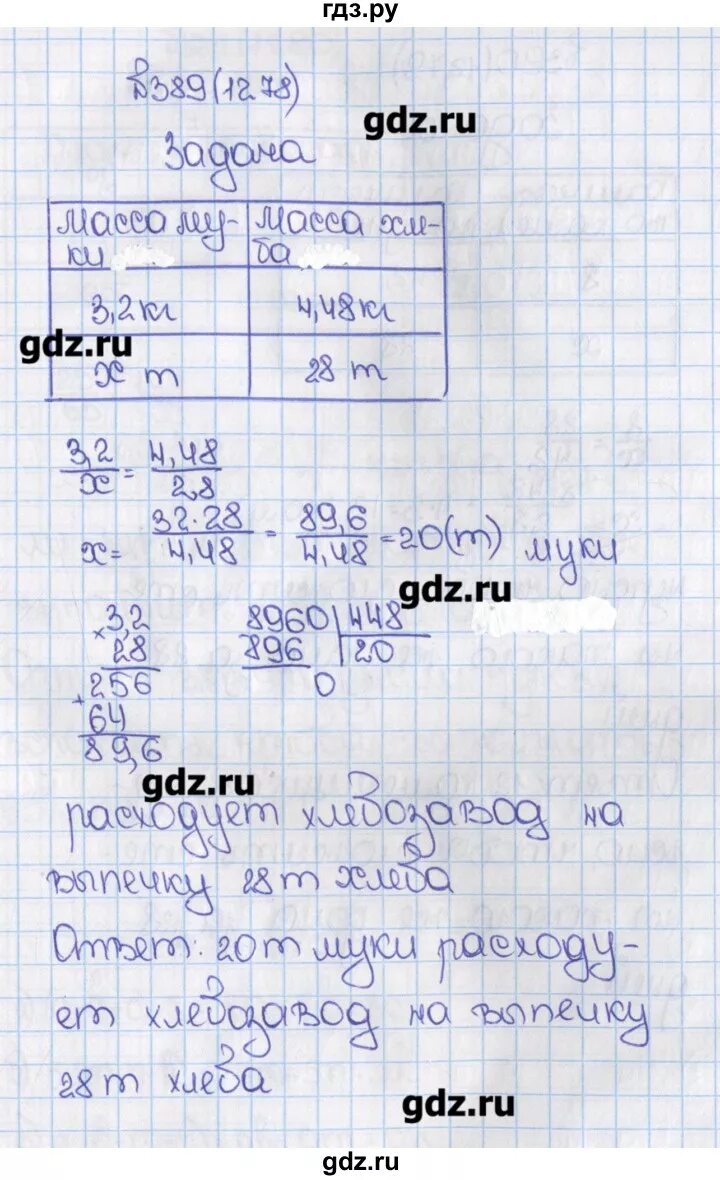 гдз.ру
№389(1278)
gdz.ru
Задача
масса му- масса хле-
ки ба
3,2кг 4,48кг
gdz.ru
х т 28 т
3,2/х = 4,48/2,8
х= 32·28/4,48 = 89,6/4,48 =20(т) муки
gdz.ru
×3,2 8960|448
28 896 20
+256 0
64
89,6
gdz.ru
расходует хлебозавод на
выпечку 28т хлеба
Ответ: 20т муки расходу-
ет хлебозавод на выпечку
28т хлеба
gdz.ru
gdz.ru